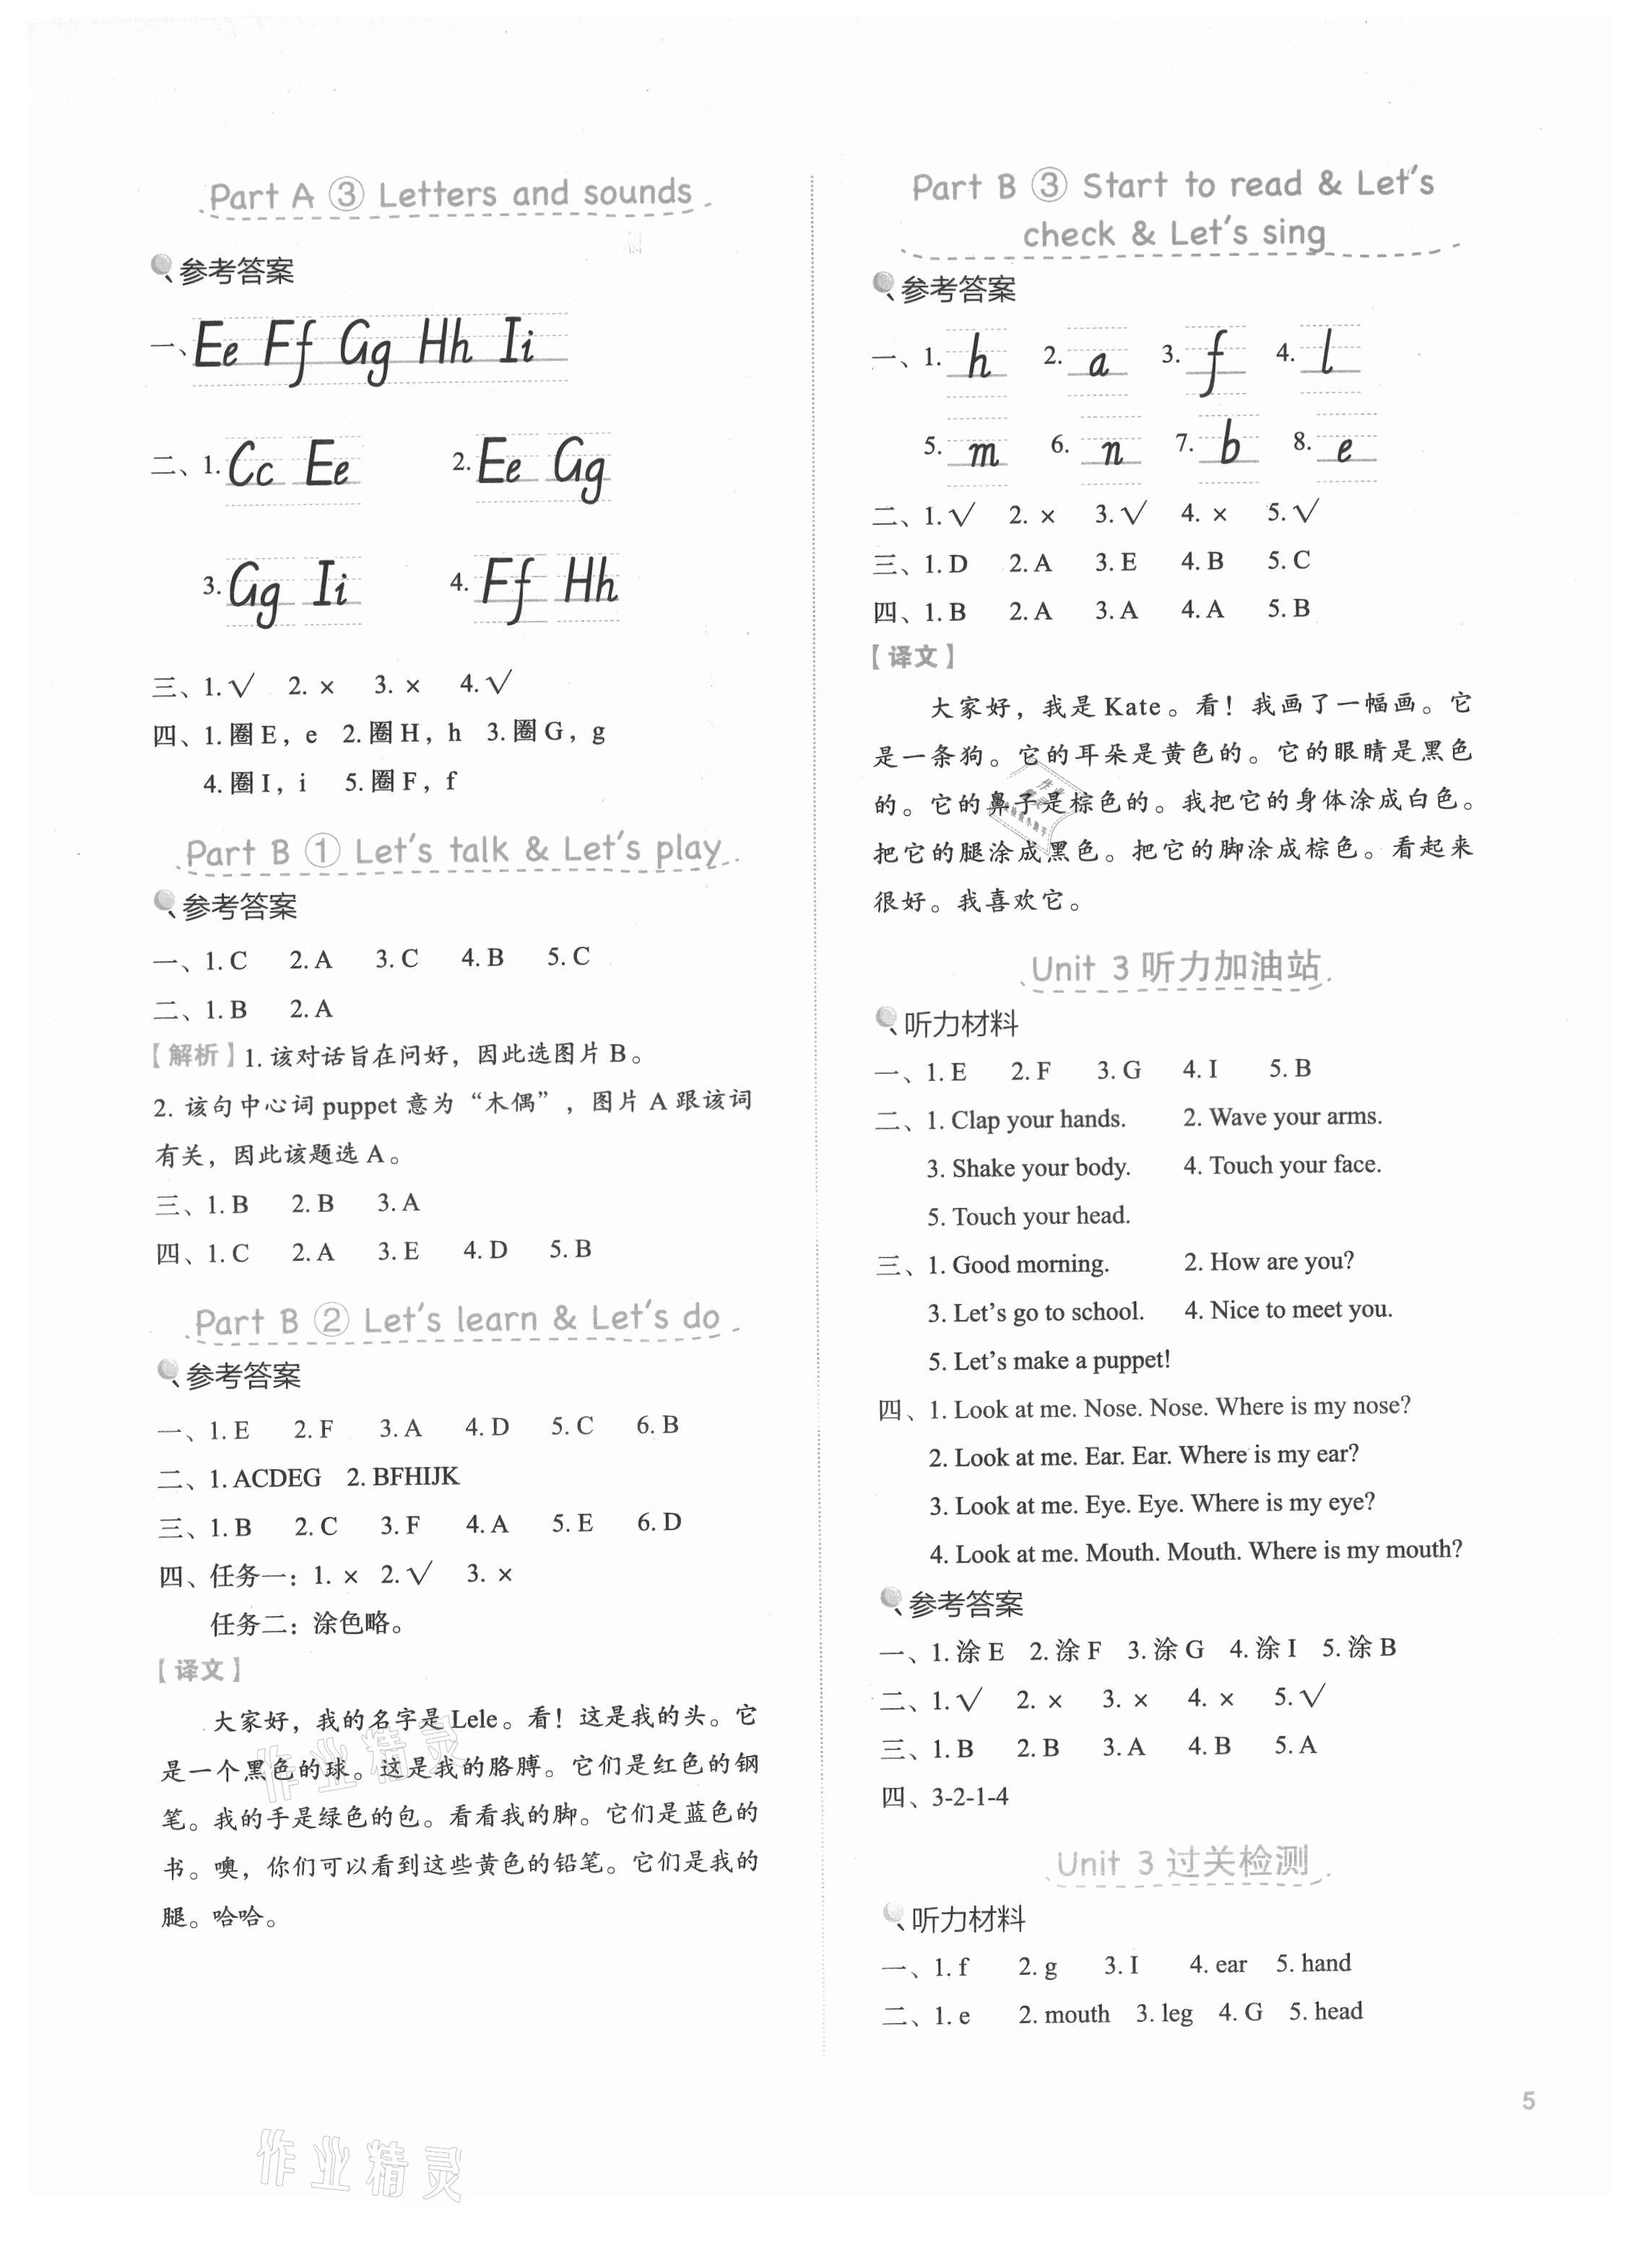 Part A ③ Letters and sounds
参考答案
一、Ee Ff Gg Hh Ii
二、1. Cc Ee 2. Ee Gg
3. Gg Ii 4. Ff Hh
三、1. √ 2. × 3. × 4. √
四、1. 圈 E，e 2. 圈 H，h 3. 圈 G，g
4. 圈 I，i 5. 圈 F，f
Part B ① Let's talk & Let's play
参考答案
一、1. C 2. A 3. C 4. B 5. C
二、1. B 2. A
【解析】1. 该对话旨在问好，因此选图片 B。
2. 该句中心词 puppet 意为“木偶”，图片 A 跟该词
有关，因此该题选 A。
三、1. B 2. B 3. A
四、1. C 2. A 3. E 4. D 5. B
Part B ② Let's learn & Let's do
参考答案
一、1. E 2. F 3. A 4. D 5. C 6. B
二、1. ACDEG 2. BFHIJK
三、1. B 2. C 3. F 4. A 5. E 6. D
四、任务一：1. × 2. √ 3. ×
任务二：涂色略。
【译文】
大家好，我的名字是 Lele。看！这是我的头。它
是一个黑色的球。这是我的胳膊。它们是红色的钢
笔。我的手是绿色的包。看看我的脚。它们是蓝色的
书。噢，你们可以看到这些黄色的铅笔。它们是我的
腿。哈哈。
作业精灵
作业精灵
Part B ③ Start to read & Let's
check & Let's sing
参考答案
一、1. h 2. a 3. f 4. l
5. m 6. n 7. b 8. e
二、1. √ 2. × 3. √ 4. × 5. √
三、1. D 2. A 3. E 4. B 5. C
四、1. B 2. A 3. A 4. A 5. B
【译文】
大家好，我是 Kate。看！我画了一幅画。它
是一条狗。它的耳朵是黄色的。它的眼睛是黑色
的。它的鼻子是棕色的。我把它的身体涂成白色。
把它的腿涂成黑色。把它的脚涂成棕色。看起来
很好。我喜欢它。
Unit 3 听力加油站
听力材料
一、1. E 2. F 3. G 4. I 5. B
二、1. Clap your hands. 2. Wave your arms.
3. Shake your body. 4. Touch your face.
5. Touch your head.
三、1. Good morning. 2. How are you?
3. Let's go to school. 4. Nice to meet you.
5. Let's make a puppet!
四、1. Look at me. Nose. Nose. Where is my nose?
2. Look at me. Ear. Ear. Where is my ear?
3. Look at me. Eye. Eye. Where is my eye?
4. Look at me. Mouth. Mouth. Where is my mouth?
参考答案
一、1. 涂 E 2. 涂 F 3. 涂 G 4. 涂 I 5. 涂 B
二、1. √ 2. × 3. × 4. × 5. √
三、1. B 2. B 3. A 4. B 5. A
四、3-2-1-4
Unit 3 过关检测
听力材料
一、1. f 2. g 3. I 4. ear 5. hand
二、1. e 2. mouth 3. leg 4. G 5. head
5